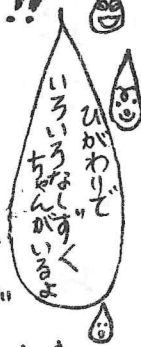 !!
ひがわりで
いろいろなしずく
ちゃんがいるよ